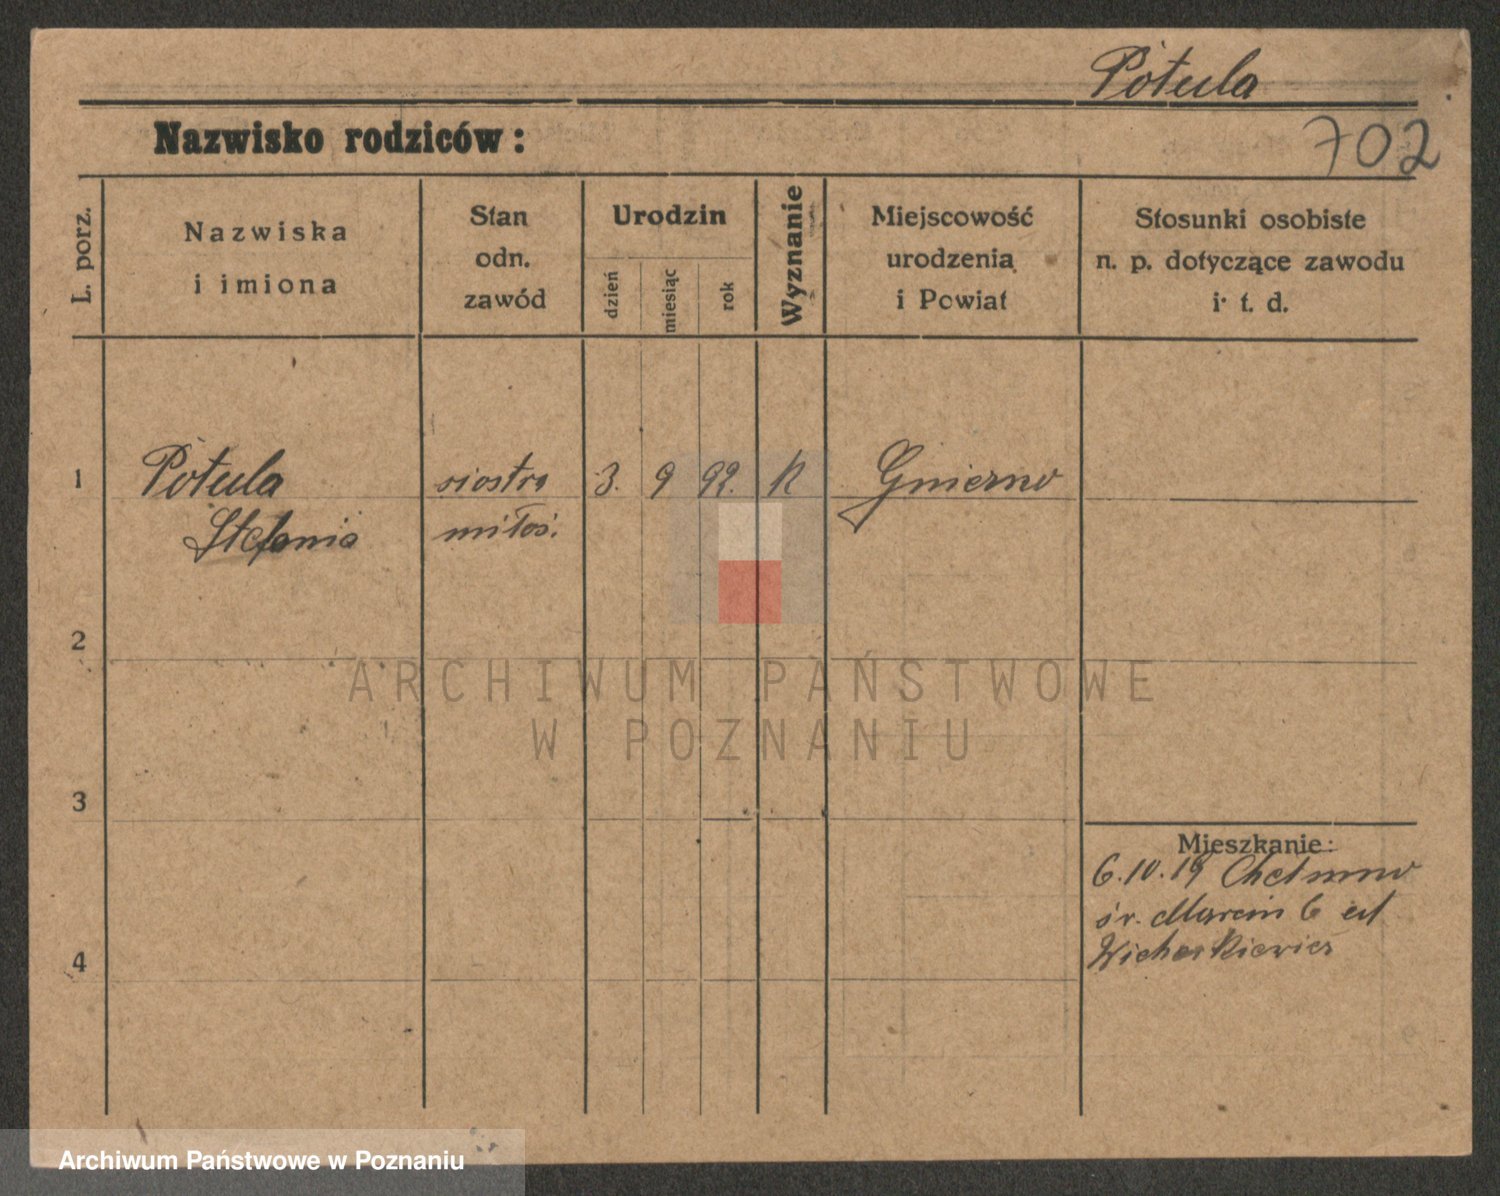 Potula
Nazwisko rodziców:
702
L. porz.
Nazwiska
i imiona
Stan
odn.
zawód
Urodzin
dzień
miesiąc
rok
Wyznanie
Miejscowość
urodzenia
i Powiat
Stosunki osobiste
n. p. dotyczące zawodu
i t. d.
1
Potula
Stefania
siostra
miłoś.
3. 9 92. K
Gniezno
2
ARCHIWUM PAŃSTWOWE
W POZNANIU
3
Mieszkanie:
6.10.19 Chełmno
św. Marcin 6 ul
4
Archiwum Państwowe w Poznaniu